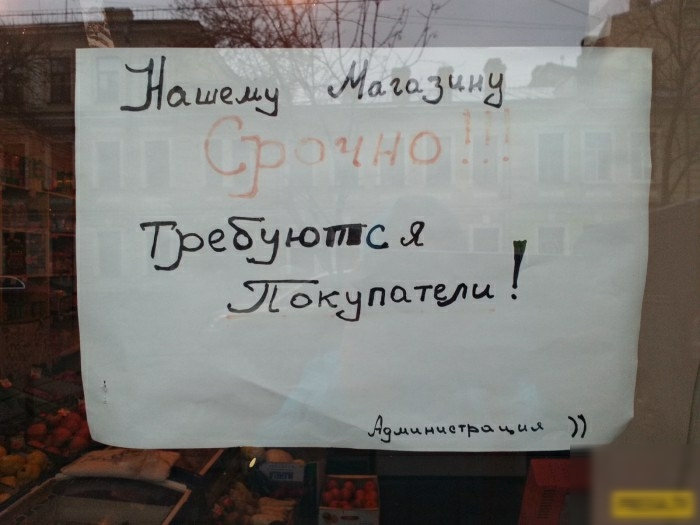 Нашему Магазину
Срочно!!!
Требуются
Покупатели!
Администрация ))